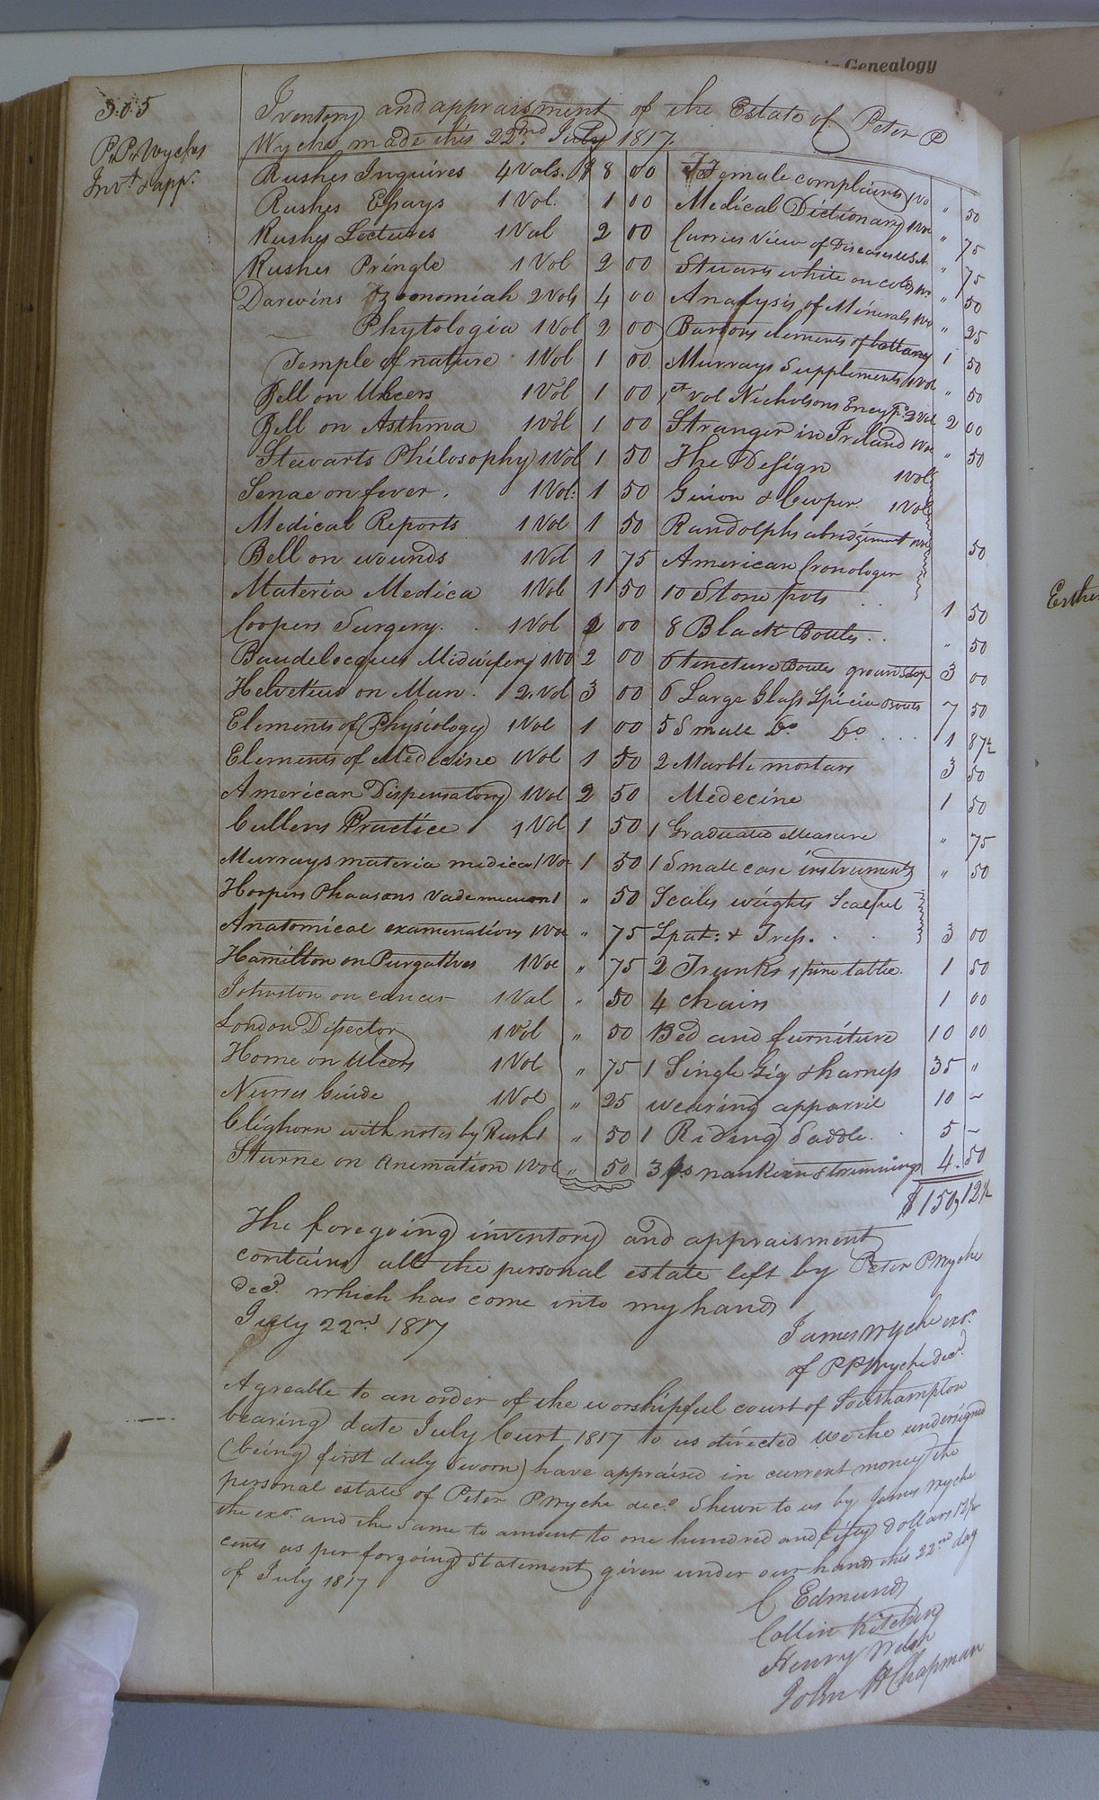 Genealogy
305
P. P. Wyches
Invt & app.
Inventory and appraisment of the Estate of Peter P
Wyche made this 22nd July 1817.
Rushes Inquires 4 Vols. $ 8 00
Rushes Essays 1 Vol. 1 00
Rushes Lectures 1 Vol 2 00
Rushes Pringle 1 Vol 2 00
Darwins Zoonomiah 2 Vols 4 00
Phytologia 1 Vol 2 00
Temple of nature 1 Vol 1 00
Bell on Ulcers 1 Vol 1 00
Bell on Asthma 1 Vol 1 00
Stewarts Philosophy 1 Vol 1 50
Senac on fever. 1 Vol. 1 50
Medical Reports 1 Vol 1 50
Bell on wounds 1 Vol 1 75
Materia Medica 1 Vol 1 50
Coopers Surgery. 1 Vol 2 00
Baudelocques Midwifery 1 Vo 2 00
Helvetius on Man. 2 Vol 3 00
Elements of Physiology 1 Vol 1 00
Elements of Medicine 1 Vol 1 50
American Dispensatory 1 Vol 2 50
Cullens Practice 1 Vol 1 50
Murrays materia medica 1 Vol 1 50
Hoopers Vade mecum 1 " 50
Anatomical examinations 1 Vol " 75
Hamilton on Purgatives 1 Vol " 75
Johnston on cancer 1 Vol " 50
London Disector 1 Vol " 50
Home on Ulcers 1 Vol " 75
Nurses Guide 1 Vol " 25
Clighorn with notes by Rush 1 " 50
Sturne on animation 1 Vol " 50
Female complaints 1 Vo " 50
Medical Dictionary 1 Vo " 75
Curries View of Diseases " 75
Stuarts white on colds 1 Vo " 50
Analysis of Minerals 1 Vo " 25
Bartons elements of bottany 1 50
Murrays Supplements 1 Vol " 50
1st vol Nicholsons Encyp. 2 Vol 2 00
Stranger in Ireland 1 Vol " 50
The Design 1 Vol
Guion & Cowper 1 Vol
Randolphs abridgement 1 Vol 50
American Cronologer
10 Stone pots 1 50
8 Black Bottles " 50
6 tincture Bottles ground Stop 3 00
6 Large Glass Specia Bottles 7 50
5 Small Do Do 1 87½
2 Marble mortars 3 50
Medecine 1 50
1 Graduated Measure " 75
1 Small case instruments " 50
Scales weights Scalpel
Sput: & Tress. 3 00
2 Trunks 1 pine table. 1 50
4 chairs 1 00
Bed and furniture 10 00
1 Single Gig & harness 35 "
wearing apparril 10 -
1 Riding Saddle. 5 -
3 ps nankien & trimmings 4.50
$150,12½
The foregoing inventory and appraisment
contains all the personal estate left by Peter P Wyche
decd. which has come into my hands
July 22nd 1817
James Wyche exr.
of P P Wyche decd.
Agreable to an order of the worshipful court of Southampton
bearing date July Court 1817 to us directed We the undersigned
(being first duly sworn) have appraised in current money the
personal estate of Peter P Wyche decd. Shewn to us by James Wyche
the exr. and the Same to amount to one hundred and fifty dollars 12½
cents as per forgoing Statement given under our hands this 22nd day
of July 1817
C Edmunds
Collin Kitching
Henry Welsh
John H Chapman
Esthe